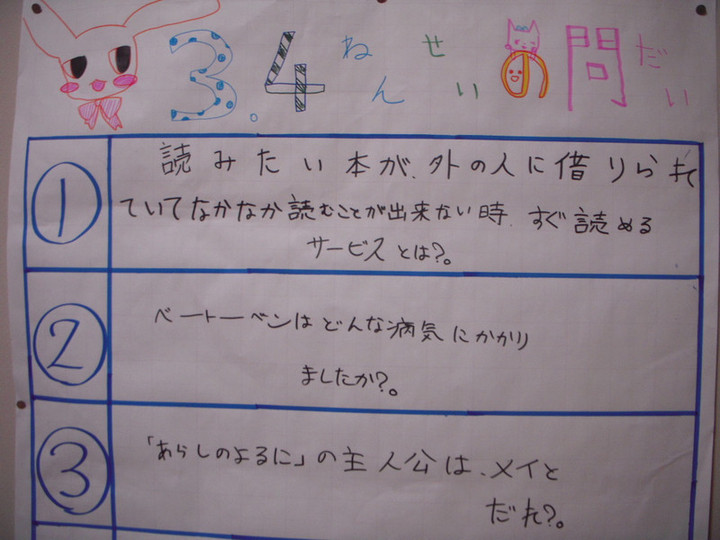 3.4ねんせいの問だい
① 読みたい本が、外の人に借りられ
ていてなかなか読むことが出来ない時、すぐ読める
サービスとは?。
② ベートーベンはどんな病気にかかり
ましたか?。
③ 「あらしのよるに」の主人公は、メイと
だれ?。